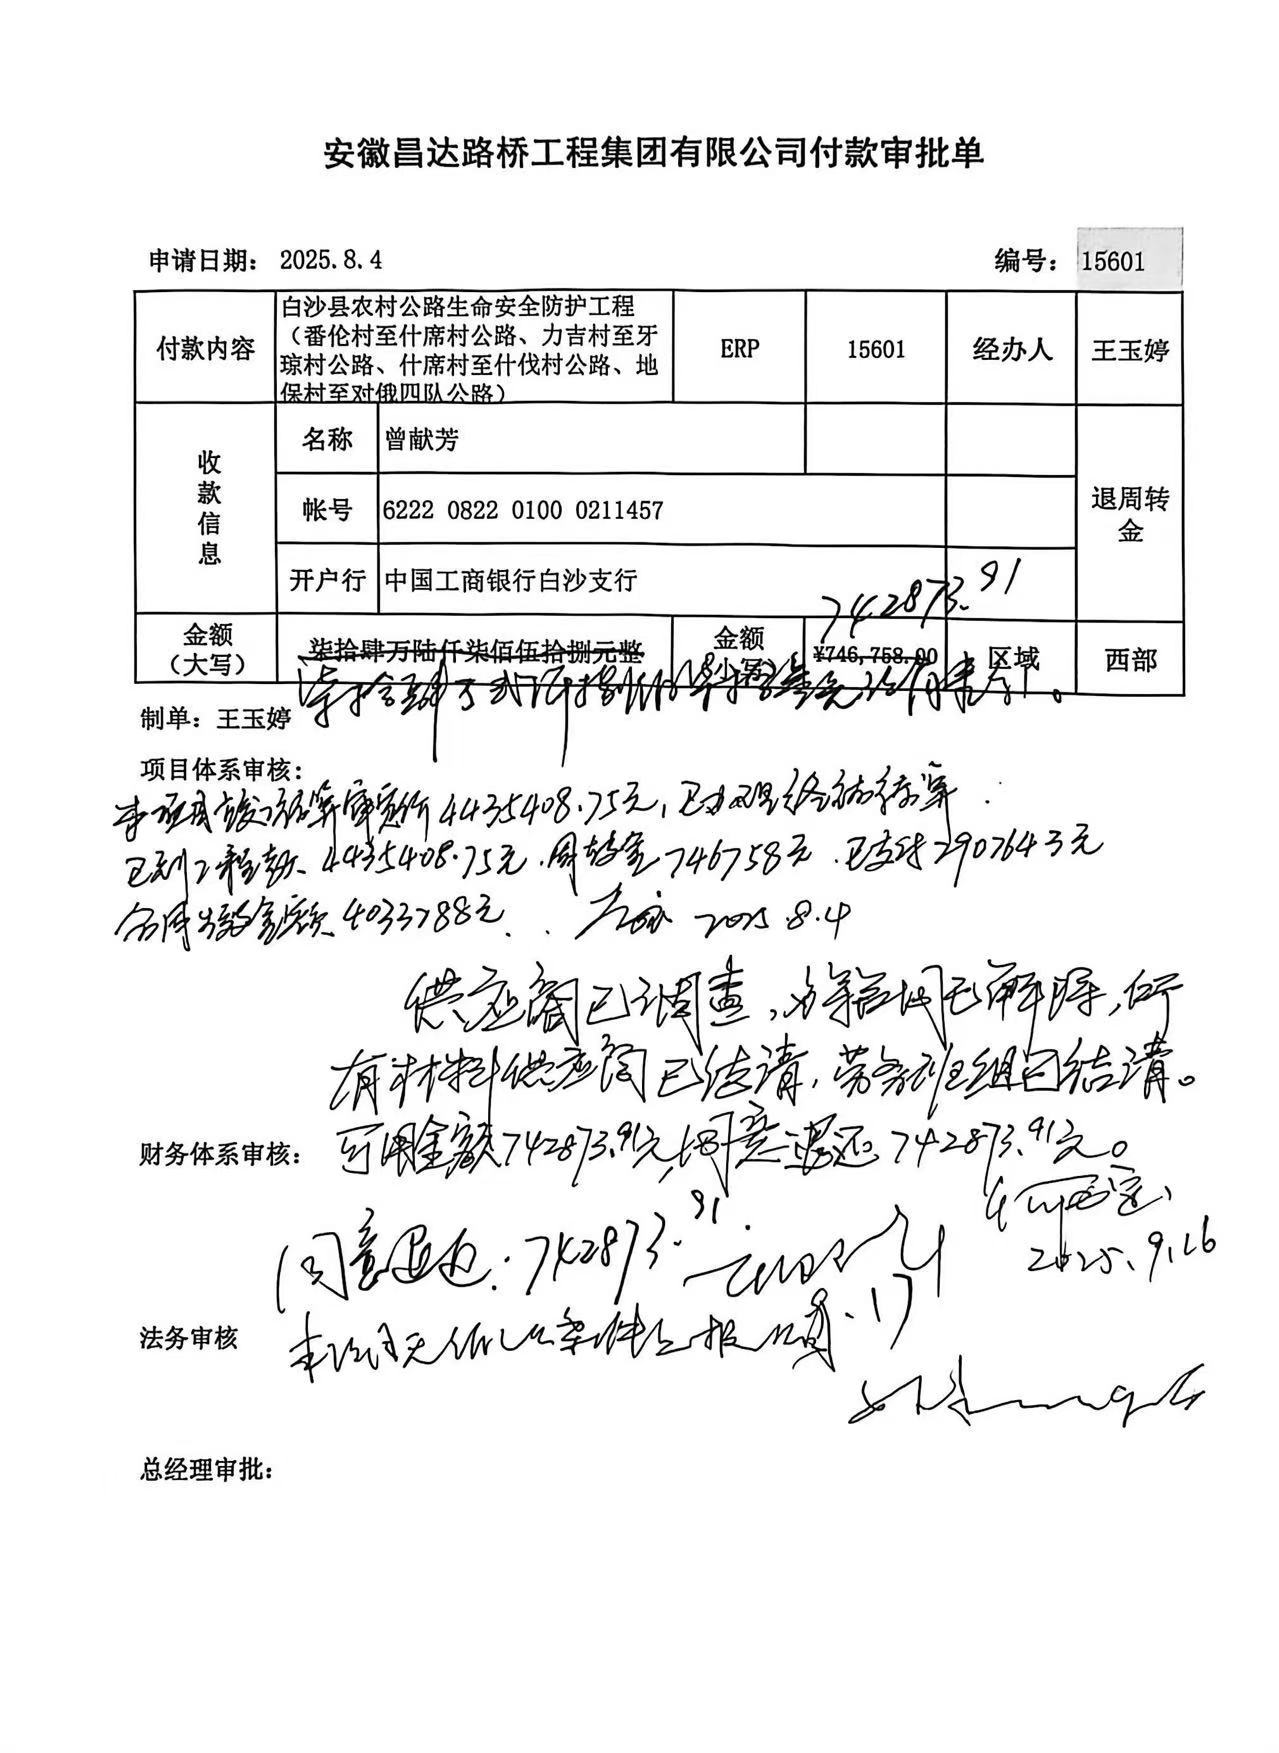 安徽昌达路桥工程集团有限公司付款审批单
申请日期: 2025.8.4 编号: 15601
付款内容 白沙县农村公路生命安全防护工程
（番伦村至什席村公路、力吉村至牙
琼村公路、什席村至什伐村公路、地
保村至对俄四队公路）
ERP 15601 经办人 王玉婷
收款信息
名称 曾献芳
帐号 6222 0822 0100 0211457
开户行 中国工商银行白沙支行
退周转金
742873.91
金额（大写） 柒拾肆万陆仟柒佰伍拾捌元整 金额（小写） ¥746,758.00 区域 西部
柒拾肆万贰仟捌佰柒拾叁元玖角壹分。
制单: 王玉婷
项目体系审核:
本项目 结算审定价4435408.75元,已办理终结结算.
已到工程款4435408.75元.周转金746758元.已支付2907643元
金额4033788元. 2025.8.4
供应商已调查, 均已解除,所
有材料供应商已结清,劳务班组已结清。
财务体系审核: 可用金额742873.91元,同意退还742873.91元。
2025.9.16
同意退还.742873.91. 9.17
法务审核
总经理审批: